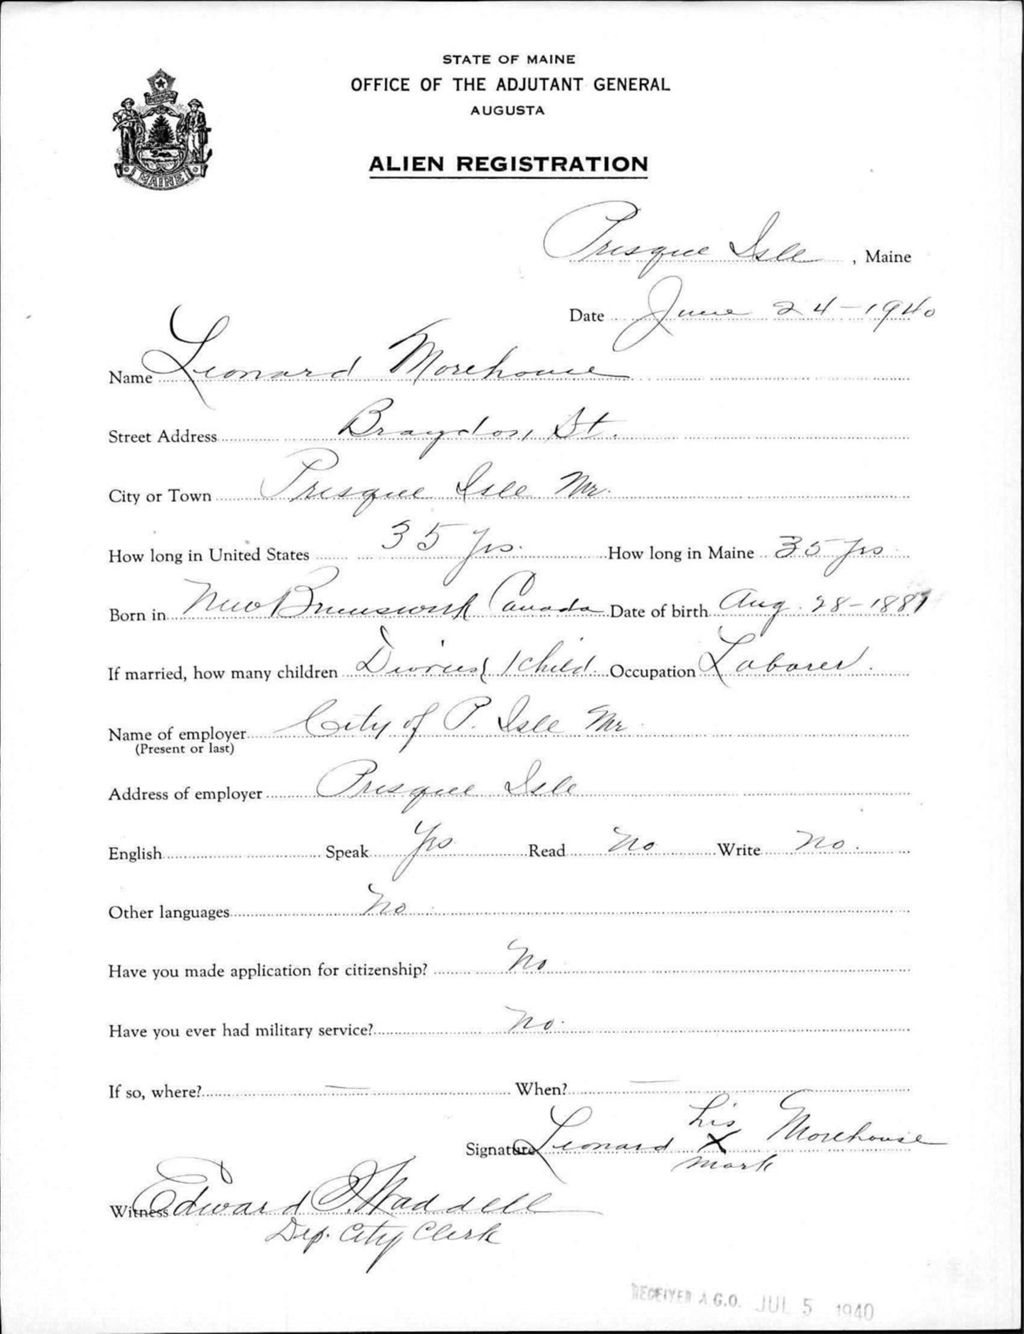 STATE OF MAINE
OFFICE OF THE ADJUTANT GENERAL
AUGUSTA
ALIEN REGISTRATION
MAINE
Presque Isle, Maine
Date June 24-1940
Name Leonard Morehouse
Street Address Braydon St.
City or Town Presque Isle Me.
How long in United States 35 yrs. How long in Maine 35 yrs
Born in New Brunswick Canada Date of birth Aug. 28-1887
If married, how many children Divorced 1 child. Occupation Laborer.
Name of employer City of P. Isle Me
(Present or last)
Address of employer Presque Isle
English Speak Yes Read No Write No.
Other languages No
Have you made application for citizenship? No
Have you ever had military service? No.
If so, where? — When? —
his
Signature Leonard X Morehouse
mark
Witness Edward Waddell
Dep. City Clerk
RECEIVED A.G.O. JUL 5 1940